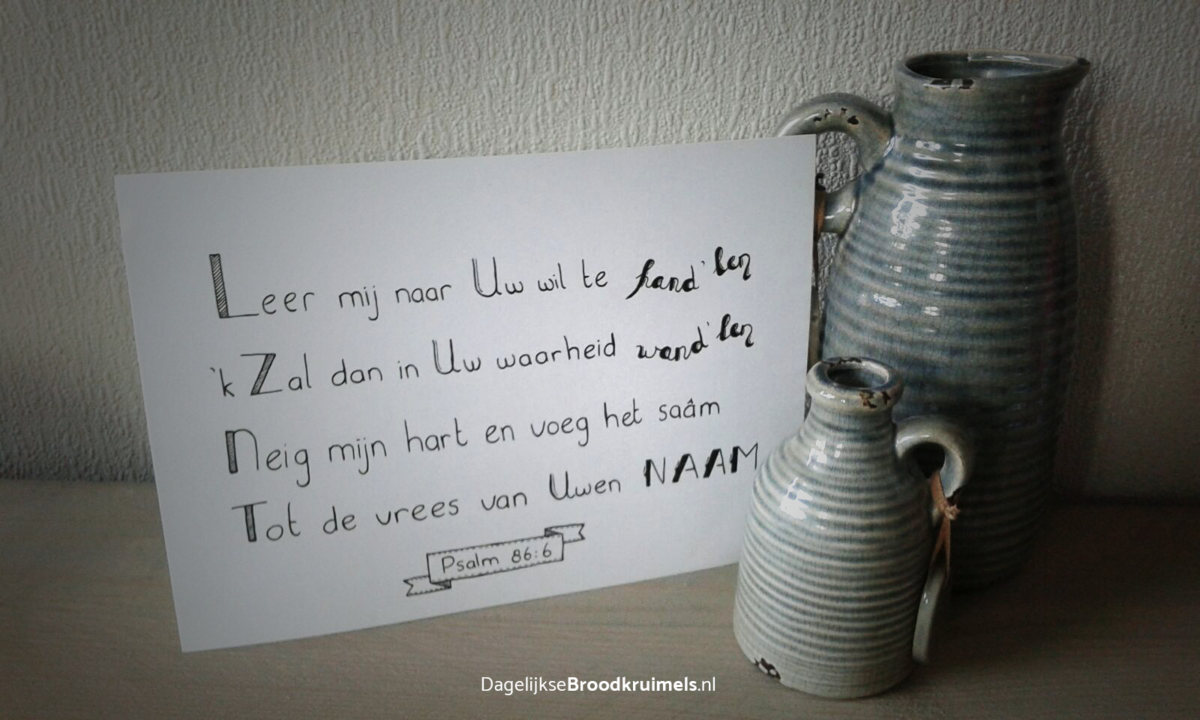 Leer mij naar Uw wil te hand'len
'k Zal dan in Uw waarheid wand'len
Neig mijn hart en voeg het saâm
Tot de vrees van Uwen NAAM
Psalm 86:6
DagelijkseBroodkruimels.nl